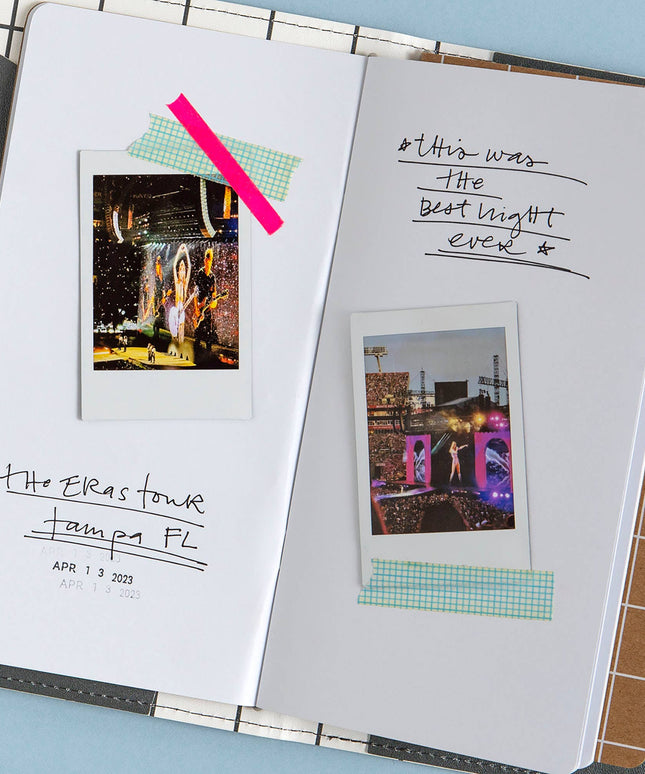 The Eras Tour
Tampa FL
APR 13 2023
APR 13 2023
APR 13 2023
This was
The
Best Night
ever